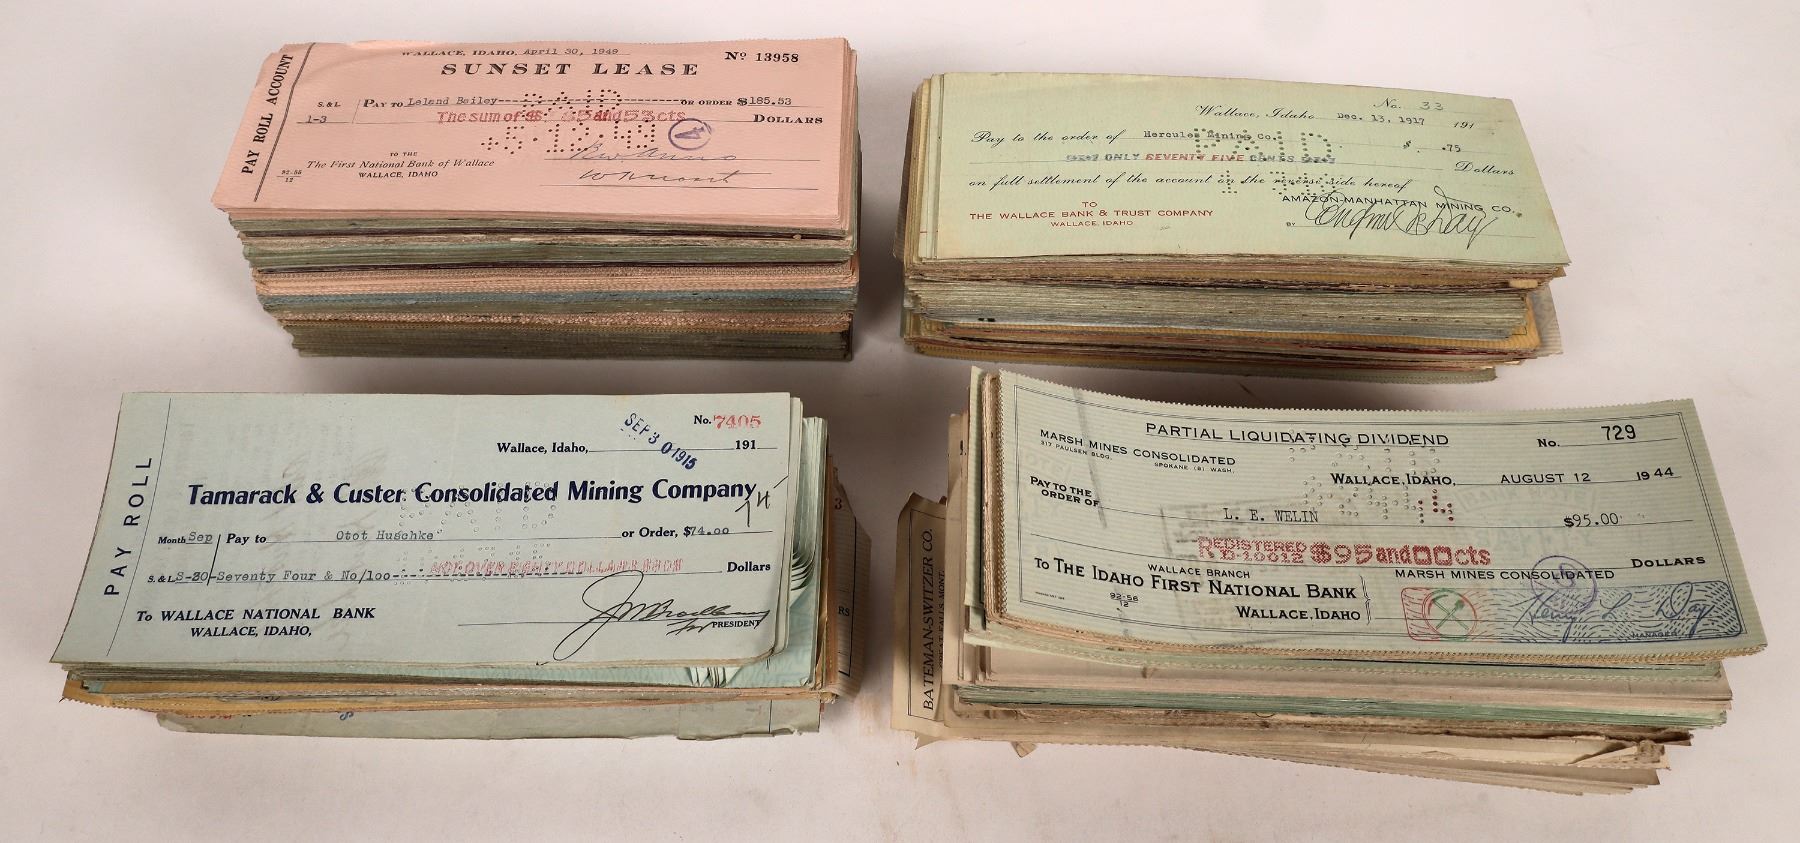 WALLACE, IDAHO, April 30, 1949
Nº 13958
SUNSET LEASE
PAY ROLL ACCOUNT
S.& L.
1-3
PAY TO Leland Bailey OR ORDER $185.53
The sum of $185 and 53 cts DOLLARS
PAID
5.12.49
TO THE
The First National Bank of Wallace
WALLACE, IDAHO
92-55
12
No. 33
Wallace, Idaho Dec. 13, 1917 191
Pay to the order of Hercules Mining Co. $ .75
ONLY SEVENTY FIVE CENTS Dollars
PAID
on full settlement of the account on the reverse side hereof
TO
THE WALLACE BANK & TRUST COMPANY
WALLACE, IDAHO
AMAZON-MANHATTAN MINING CO.
BY
No. 7405
Wallace, Idaho, SEP 30 1915 191
PAY ROLL
Tamarack & Custer Consolidated Mining Company
74
Month Sep Pay to Otot Huschke or Order, $74.00
S.&L S-30 Seventy Four & No/100 Dollars
NOT OVER EIGHTY DOLLARS $80$
To WALLACE NATIONAL BANK
WALLACE, IDAHO,
PRESIDENT
3
RS
PARTIAL LIQUIDATING DIVIDEND
No. 729
MARSH MINES CONSOLIDATED
317 PAULSEN BLDG. SPOKANE (8) WASH.
WALLACE, IDAHO, AUGUST 12 1944
PAY TO THE
ORDER OF
L. E. WELIN $95.00
REGISTERED
$95 and 00 cts DOLLARS
WALLACE BRANCH
TO THE IDAHO FIRST NATIONAL BANK
92-56
12
WALLACE, IDAHO
MARSH MINES CONSOLIDATED
Henry L. Day
MANAGER
BATEMAN-SWITZER CO.
GREAT FALLS, MONT.